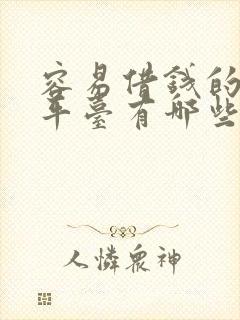 容易借錢的
平臺有哪些
人憐眾神